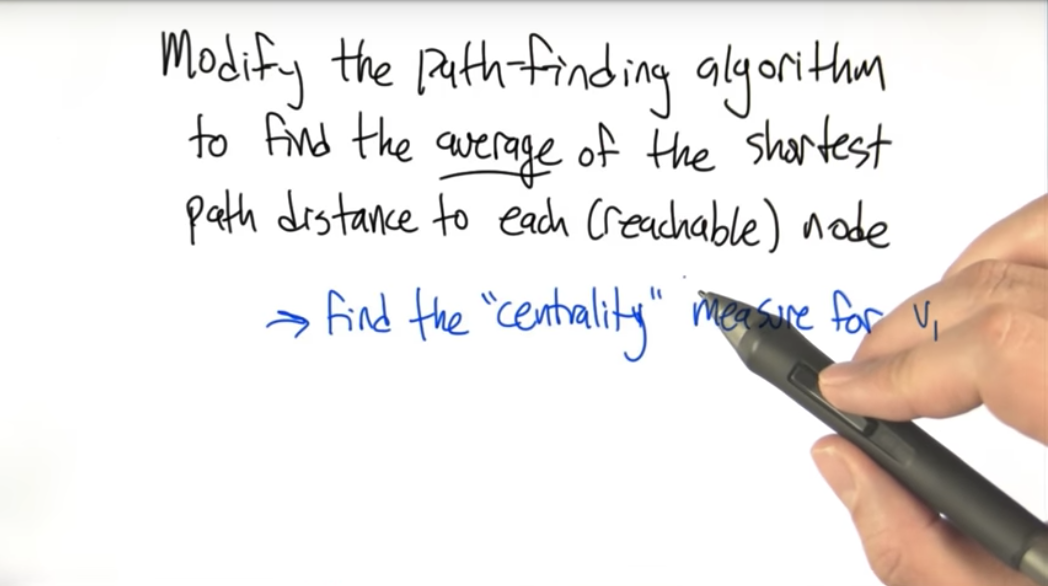 Modify the path-finding algorithm
to find the average of the shortest
path distance to each (reachable) node
⇒ find the "centrality" measure for v₁